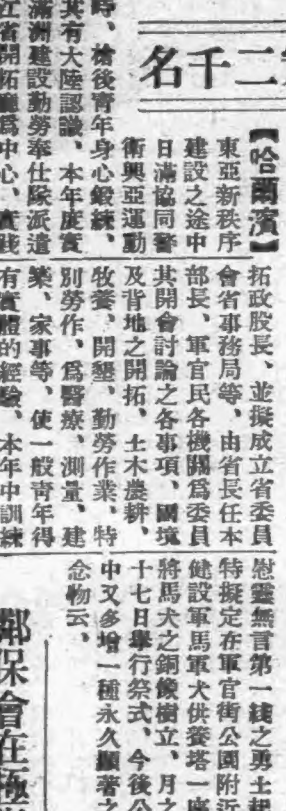 二千名
【哈爾濱】
東亞新秩序
建設之途中
日滿協同警
衛興亞運動
時、槍後青年身心鍛練、
其有大陸認識、本年度實
滿洲建設勤勞奉仕隊派遣
江省開拓廳爲中心、實踐
拓政股長、並擬成立省委員
會省事務局等、由省長任本
部長、軍官民各機關爲委員
其開會討論之各事項、國境
及背地之開拓、土木農耕、
牧養、開墾、勤勞作業、特
別勞作、爲醫療、測量、建
築、家事等、使一般靑年得
有實體的經驗、本年中訓練
慰靈無言第一綫之勇士起
特擬定在軍官街公園附近
健設軍馬軍犬供養塔一座
將馬犬之銅像樹立、月之
十七日舉行祭式、今後公
中又多增一種永久顯著之
念物云、
鄰保會在極